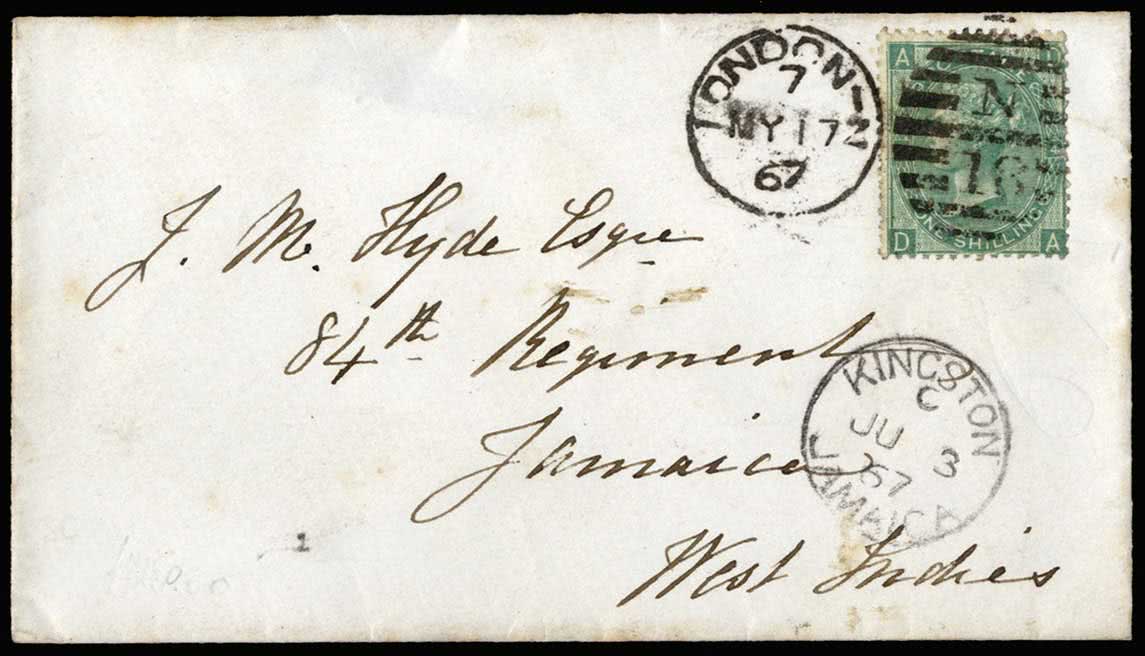 LONDON-N
7
MY 17
67
A
N
16
ONE SHILLING
D A
J. M. Hyde Esqre
84th Regiment
Jamaica
West Indies
KINGSTON
C
JU 3
67
JAMAICA